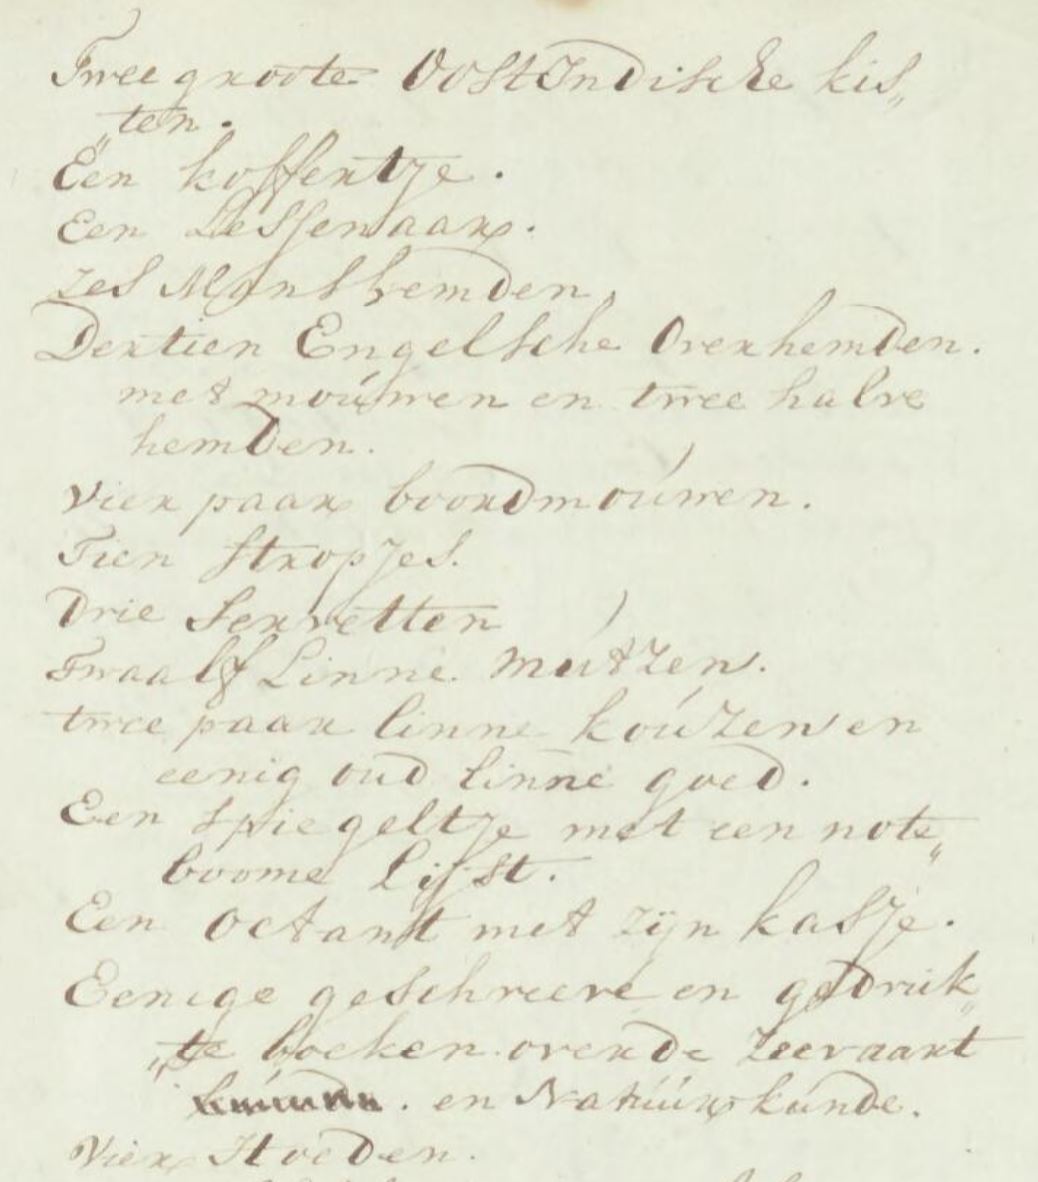 Twee groote OostIndische kis„
„ten.
Een koffertje.
Een Lessenaar.
Zes Manshemden,
Dertien Engelsche Overhemden.
met moúwen en twee halve
hemden.
Vier paar boordmoúwen.
Tien Stropjes.
Drie Servetten
Twaalf Linne Mútzen.
twee paar linne koúzen en
eenig oud linne goed.
Een Spiegeltje met een note„
boome Lijst.
Een Octant met zijn kasje.
Eenige geschreeve en gedruk„
„te boeken over de Zeevaart
. en Natúúrkúnde.
Vier Hoeden.